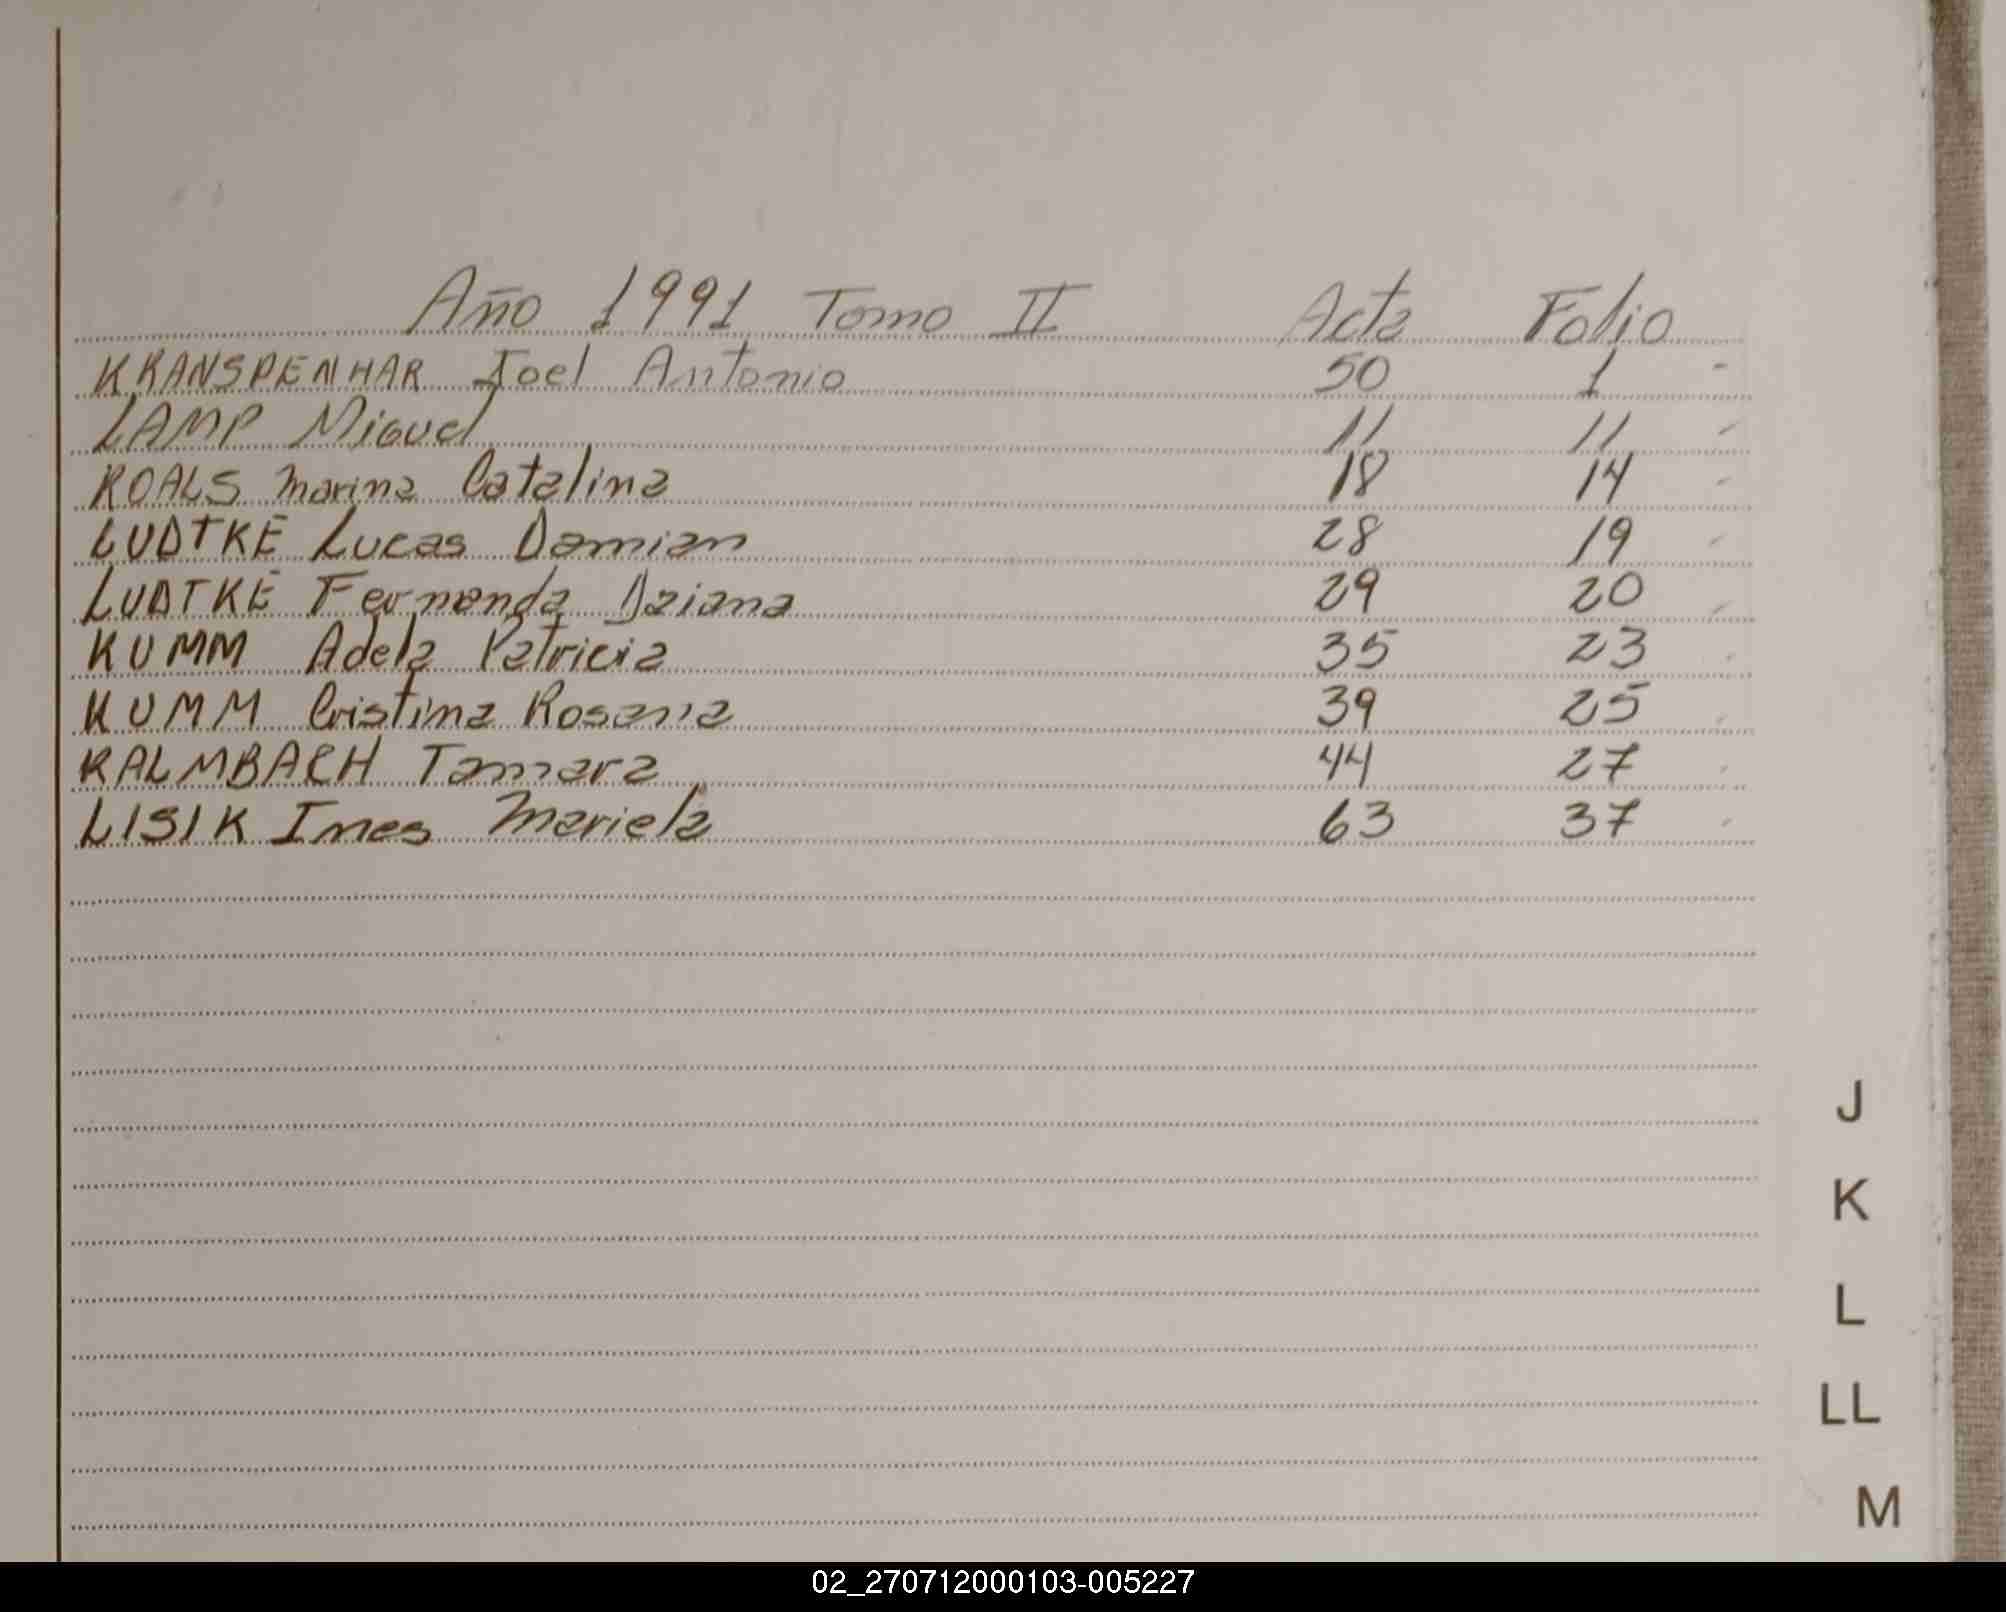 Año 1991 Tomo II Acta Folio
KRANSPENHAR Joel Antonio 50 1 -
LAMP Miguel 11 11 -
ROALS Marina Catalina 18 14 -
LUDTKE Lucas Damian 28 19 -
LUDTKE Fernanda Daiana 29 20 -
KUMM Adela Patricia 35 23 -
KUMM Cristina Rosana 39 25
KALMBACH Tamara 44 27
LISIK Ines Mariela 63 37
J
K
L
LL
M
02_270712000103-005227